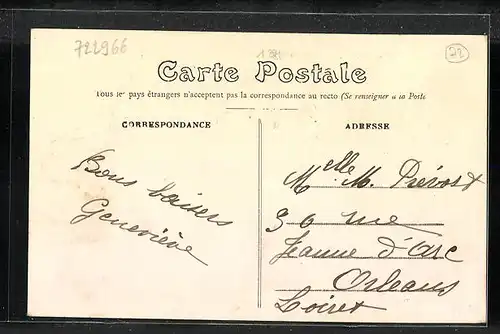 722966
22
Carte Postale
Tous les pays étrangers n'acceptent pas la correspondance au recto (Se renseigner à la Poste
CORRESPONDANCE
ADRESSE
Bons baisers
Geneviève
Melle M. Prévost
36 rue
Jeanne d'Arc
Orleans
Loiret